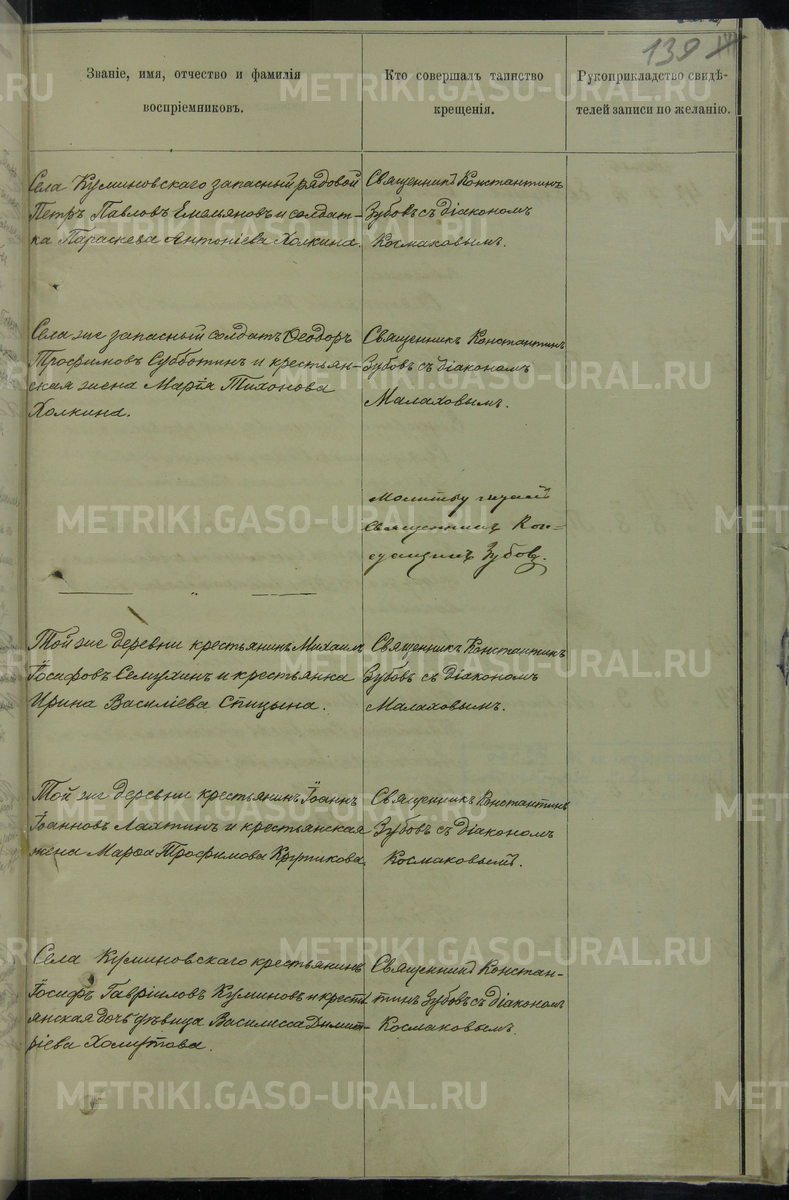 139
Званіе, имя, отчество и фамилія
воспріемниковъ.
Кто совершалъ таинство
крещенія.
Рукоприкладство свидѣ-
телей записи по желанію.
Села Куминовскаго запасный рядовой
Петръ Павловъ Емельяновъ и солдат-
ка Параскева Антоніева Холкина.
Священникъ Константинъ
Зубовъ съ діакономъ
Космаковымъ.
Села же запасный солдатъ Ѳеодоръ
Трофимовъ Субботинъ и крестьян-
ская жена Марія Тихонова
Холкина.
Священникъ Константинъ
Зубовъ съ діакономъ
Малаховымъ.
Молитву читалъ
Священникъ Кон-
Зубовъ.
Той же деревни крестьянинъ Михаилъ
Іосифовъ Семухинъ и крестьянка
Ирина Василіева Спицына.
Священникъ Константинъ
Зубовъ съ діакономъ
Малаховымъ.
Той же деревни крестьянинъ Іоаннъ
Іоанновъ Лахтинъ и крестьянская
жена Марѳа Трофимова Крутикова
Священникъ Константинъ
Зубовъ съ діакономъ
Космаковымъ.
Села Куминовскаго крестьянинъ
Іосифъ Гавріиловъ Куминовъ и кресть
янская дочь дѣвица Василисса Димит-
ріева Хомутова.
Священникъ Констан-
тинъ Зубовъ съ діакономъ
Космаковымъ.
METRIKI.GASO-URAL.RU